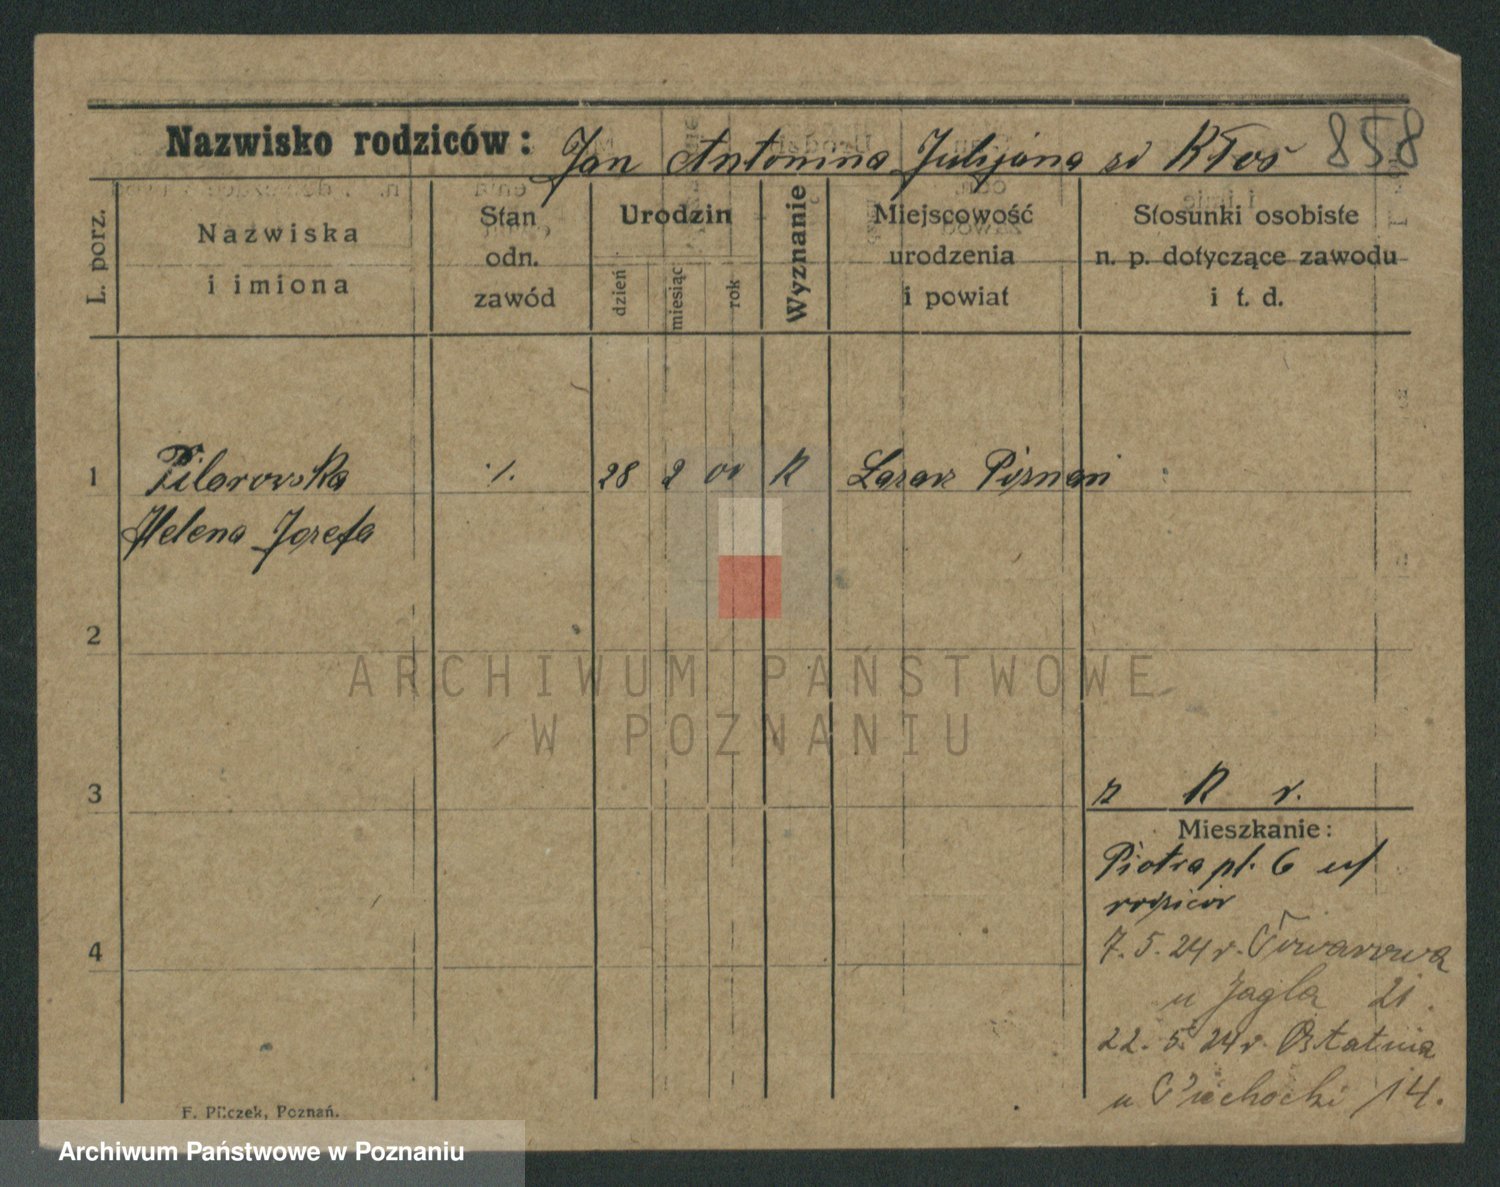 858
Nazwisko rodziców: Jan Antonina Julijana zd Kłos
L. porz.
Nazwiska i imiona
Stan odn. zawód
Urodzin
dzień
miesiąc
rok
Wyznanie
Miejscowość urodzenia i powiat
Stosunki osobiste n. p. dotyczące zawodu i t. d.
1 Pilarowska ./. 28 2 00 K Łazarz Poznań
Helena Józefa
2
3
K r.
Mieszkanie:
Piotra pl. 6
rodziców
4
7. 5. 24 r. Towarowa
u Jagla 21.
22. 5. 24 r. Ostatnia
u Piechocki 14.
F. Pilczek, Poznań.
ARCHIWUM PAŃSTWOWE
W POZNANIU
Archiwum Państwowe w Poznaniu